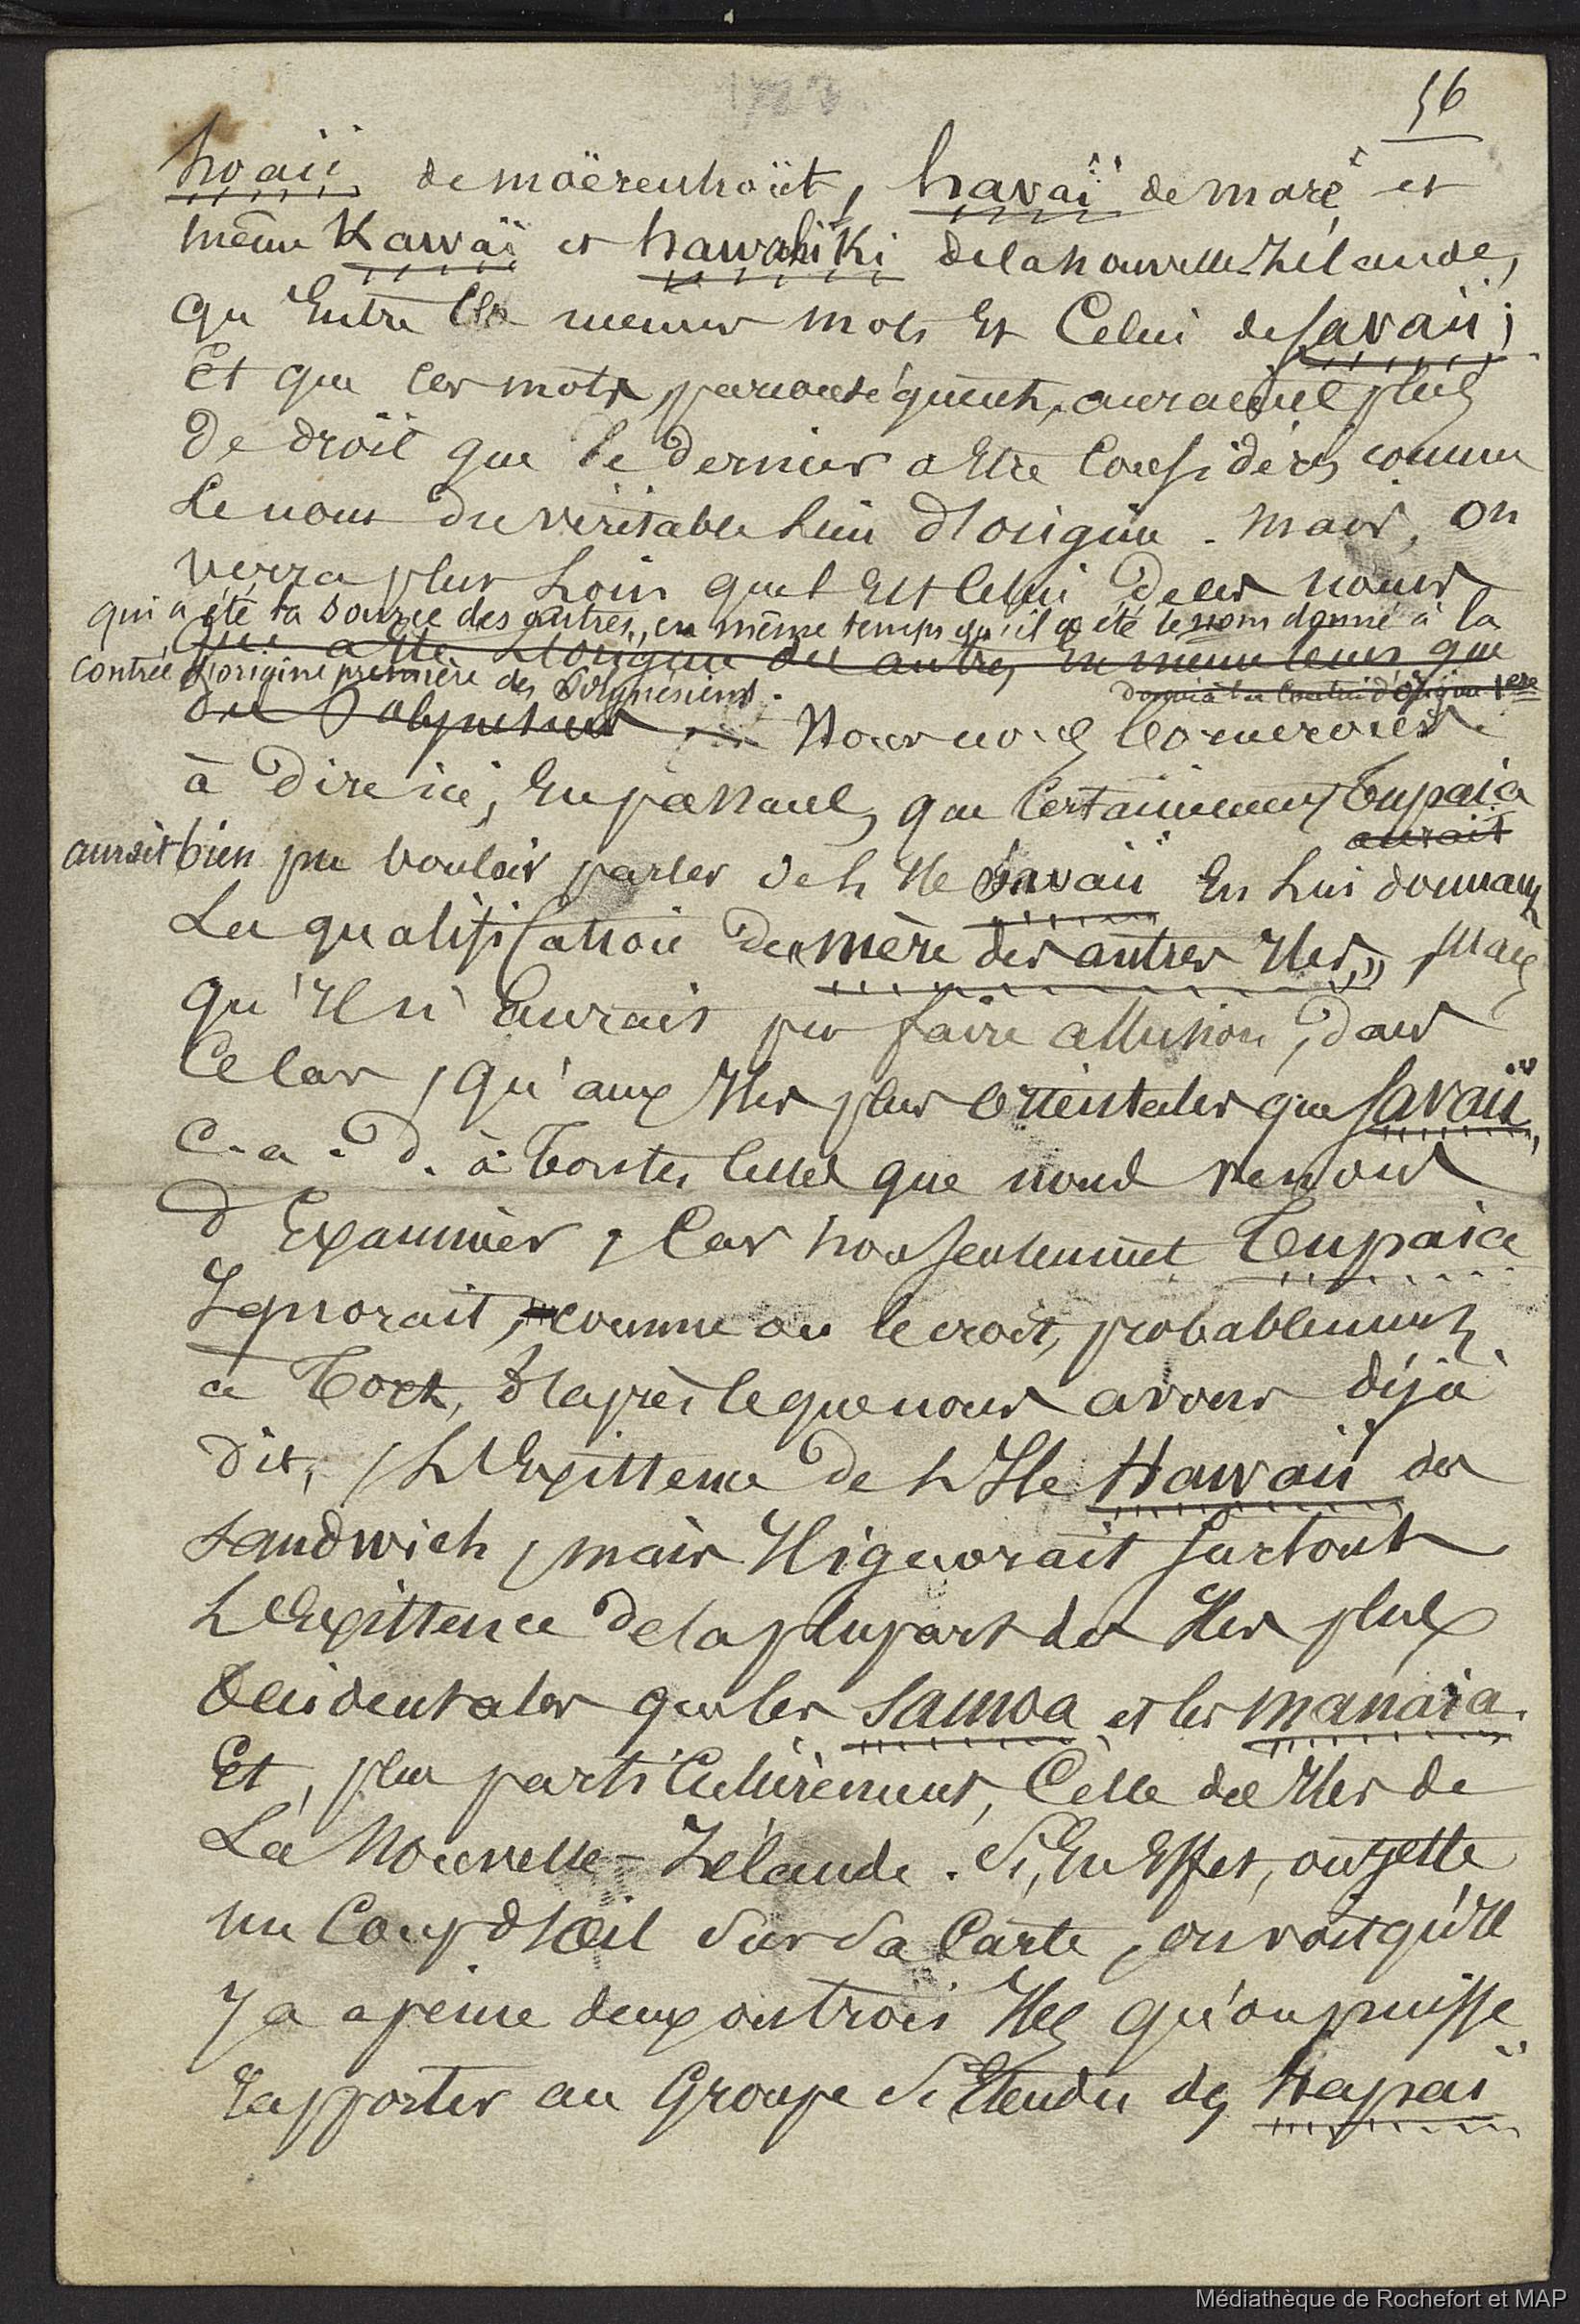 56
hoaii de moërenhoüt, havaï de maré et
même Kawaï et hawahiki de la nouvelle Zélande,
qu'Entre les mêmes mots Et Celui de Savaii;
Et que ces mots, par conséquent, auraient plus
De droit que le Dernier a Etre Considérés comme
Le nom du véritable Lieu d'origine. Mais, on
verra plus Loin quel Est Celui De ces noms
qui a été la source des autres, en même temps qu'il a été le nom donné à la
qui a été L'origine des autres En même tems que
contrée d'origine première des Polynésiens.
donné à la Contrée d'origine 1ere
des Polynesiens Nous nous bornerons
à Dire ici, En passant, que Certainement Tupaia
aurait
aurait bien pu vouloir parler de L'Ile Savaii En Lui donnant
La qualification De « mère des autres Iles, » Mais
qu'Il n'aurait pu faire allusion, dans
Ce Cas, qu'aux Iles plus orientales que Savaii,
C. a. D. à Toutes Celles que nous venons
d'Examiner, Car non Seulement Tupaia
Ignorait, comme on le croit, probablement
à Tort, D'après ce que nous avons déjà
Dit, L'Existence de L'Ile Hawaii des
Sandwich, mais Il ignorait Surtout
L'Existence de la plupart des Iles plus
Occidentales que les Samoa et les Manaia.
Et, plus particulièrement, Celle des Iles de
La Nouvelle-Zélande. Si, En Effet, on jette
un Coup d'œil Sur Sa Carte, on voit qu'Il
Y a a peine deux ou trois Iles qu'on puisse
rapporter au Groupe Si Etendu des Hapaï
Médiathèque de Rochefort et MAP